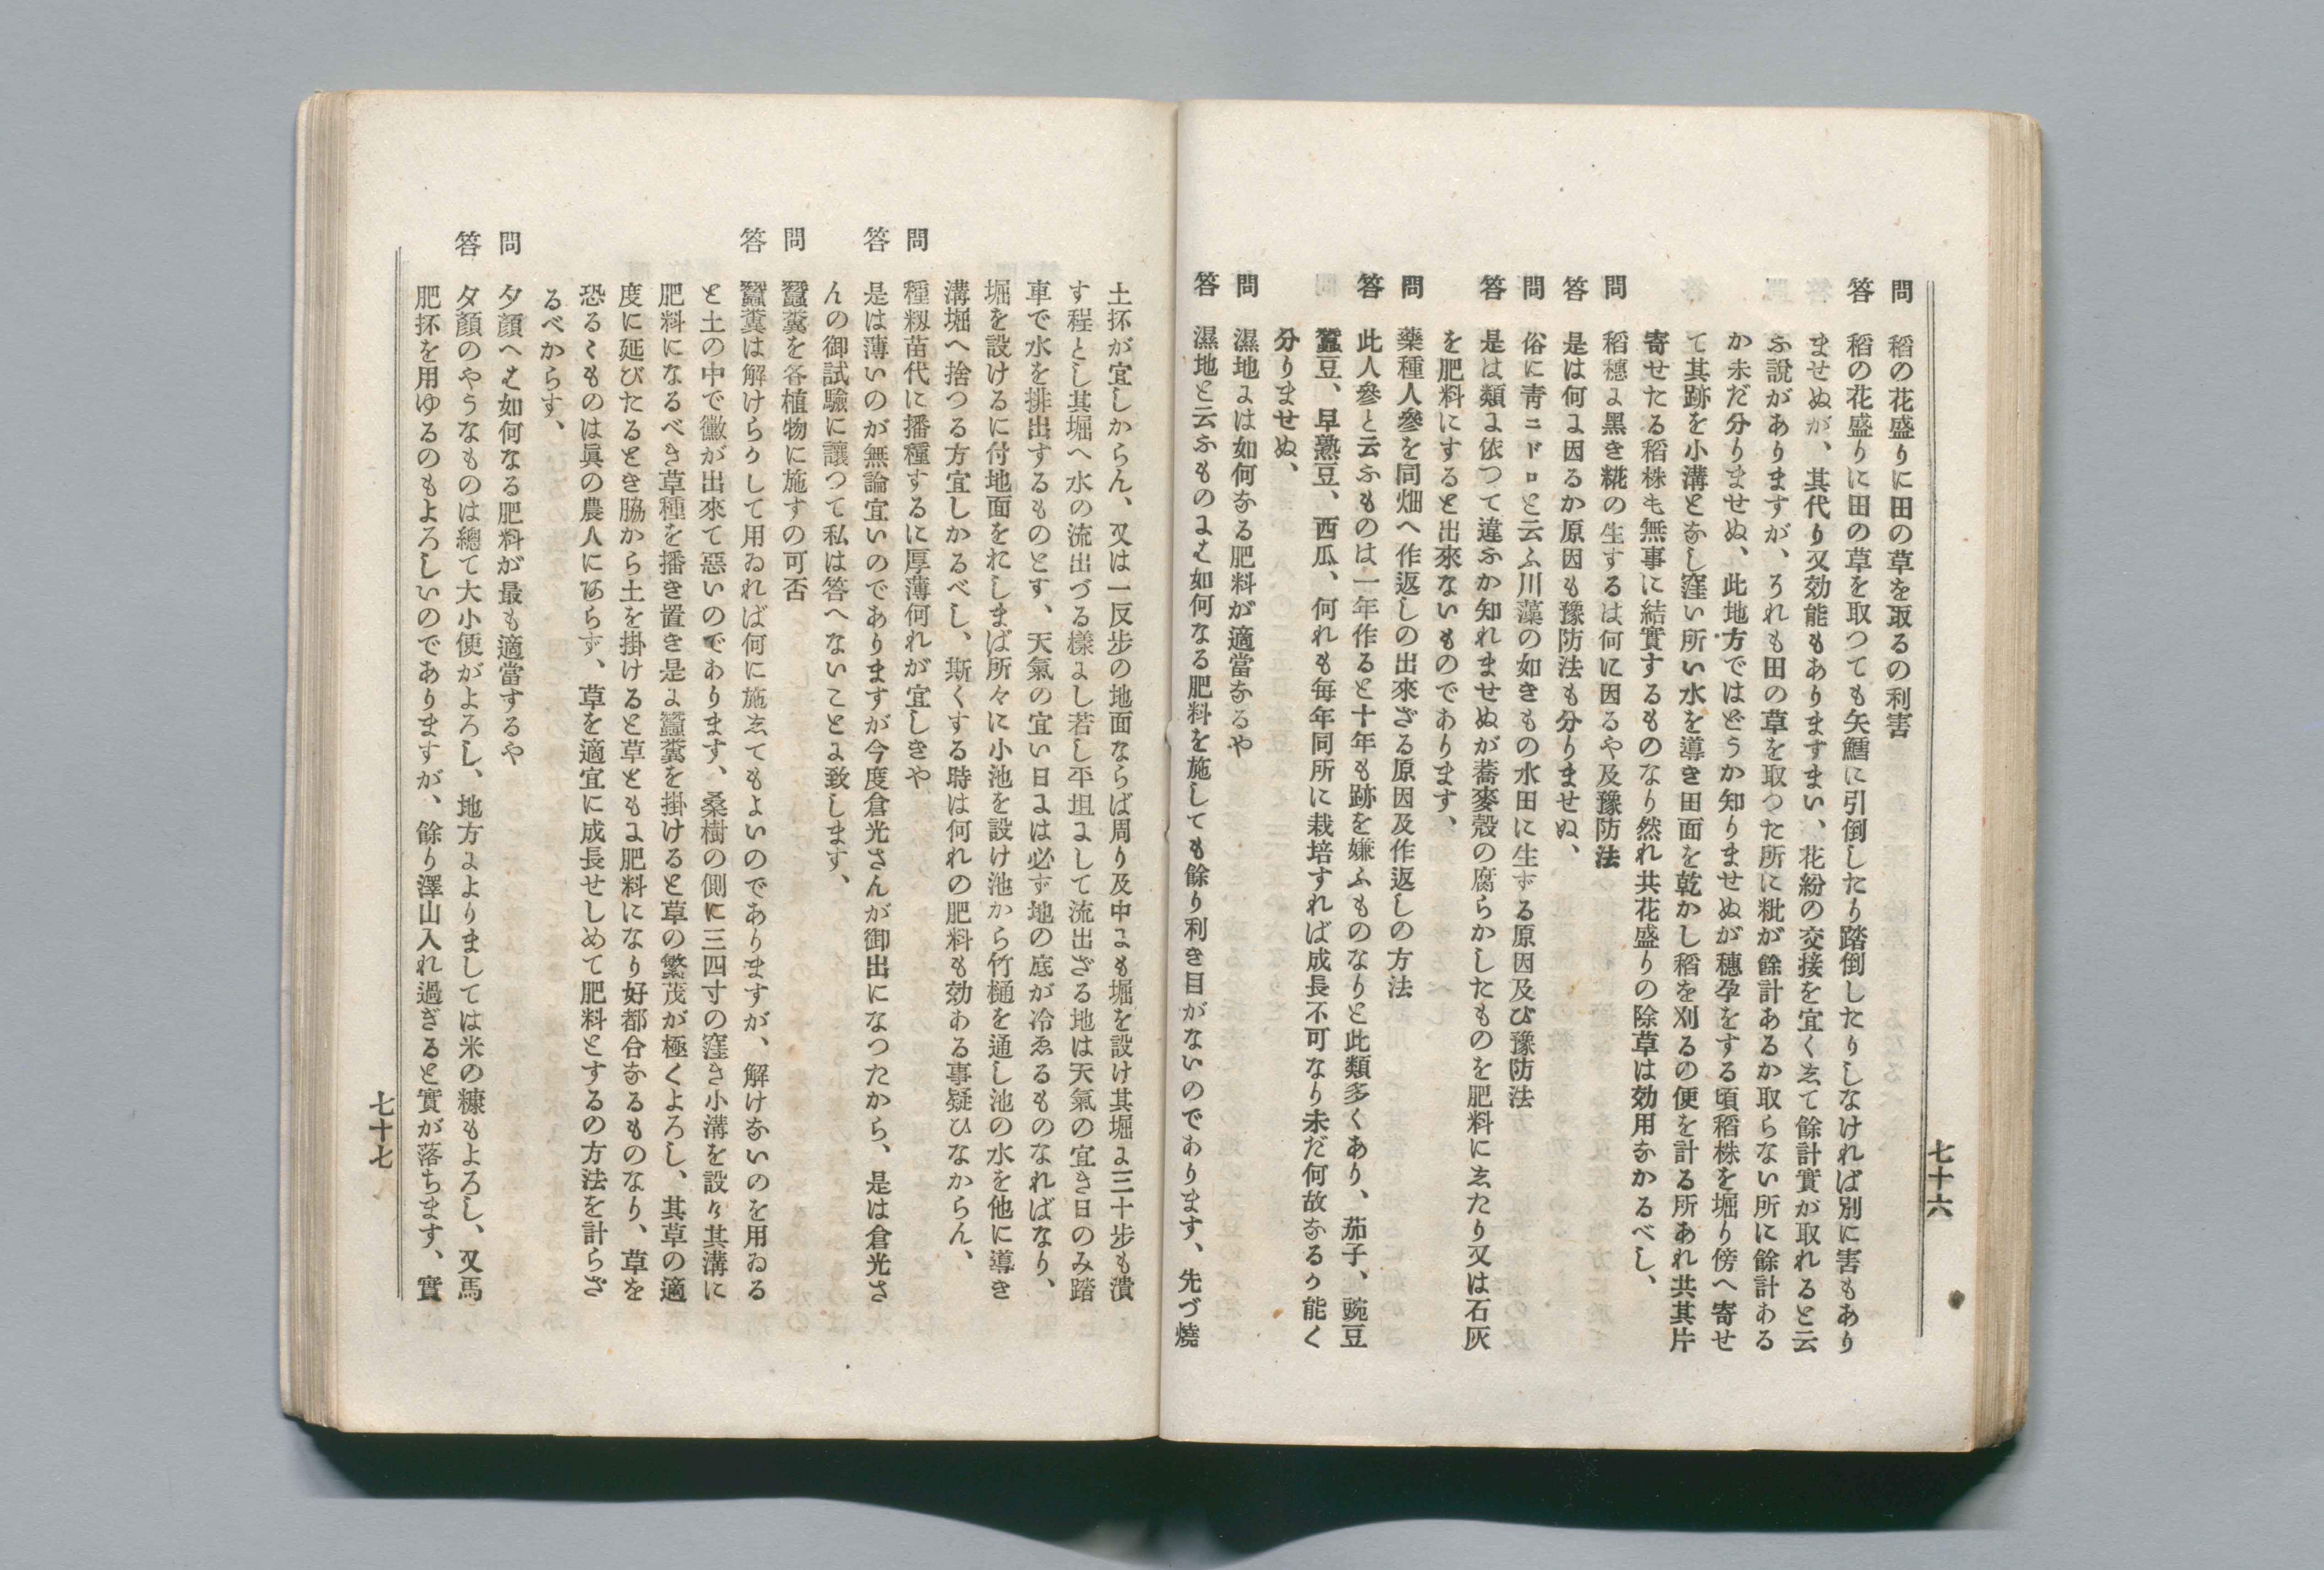 七十六
問 稻の花盛りに田の草を取るの利害
答 稻の花盛りに田の草を取つても矢鱈に引倒したり踏倒したりしなければ別に害もあり
ませぬが、其代り又効能もありますまい、花紛の交接を宜く𛁈て餘計實が取れると云
ふ說がありますが、𛃅れも田の草を取つた所に粃が餘計あるか取らない所に餘計ある
か未だ分りませぬ、此地方ではどうか知りませぬが穗孕をする頃稻株を堀り傍へ寄せ
て其跡を小溝となし窪い所い水を導き田面を乾かし稻を刈るの便を計る所あれ共其片
寄せたる稻株も無事に結實するものなり然れ共花盛りの除草は効用なかるべし、
問 稻穗𛂌黑き糀の生するは何に因るや及豫防法
答 是は何𛂌因るか原因も豫防法も分りませぬ、
問 俗に靑ニドロと云ふ川藻の如きもの水田に生ずる原因及び豫防法
答 是は類𛂌依つて違ふか知れませぬが蕎麥殼の腐らかしたものを肥料に𛁈たり又は石灰
を肥料にすると出來ないものであります、
問 藥種人參を同畑へ作返しの出來ざる原因及作返しの方法
答 此人參と云ふものは一年作ると十年も跡を嫌ふものなりと此類多くあり、茄子、豌豆
蠶豆、早熟豆、西瓜、何れも每年同所に栽培すれば成長不可なり未だ何故なるか能く
分りませぬ、
問 濕地𛂌は如何なる肥料が適當なるや
答 濕地と云ふもの𛂌𛂞如何なる肥料を施しても餘り利き目がないのであります、先づ燒
土抔が宜しからん、又は一反步の地面ならば周り及中𛂌も堀を設け其堀𛂌三十步も潰
す程とし其堀へ水の流出づる樣𛂌し若し平坦𛂌して流出ざる地は天氣の宜き日のみ踏
車で水を排出するものとす、天氣の宜い日𛂌は必ず地の底が冷ゑるものなればなり、
堀を設けるに付地面をれしまば所々に小池を設け池から竹樋を通し池の水を他に導き
溝堀へ捨つる方宜しかるべし、斯くする時は何れの肥料も効ある事疑ひなからん、
問 種籾苗代に播種するに厚薄何れが宜しきや
答 是は薄いのが無論宜いのでありますが今度倉光さんが御出になつたから、是は倉光さ
んの御試驗に讓つて私は答へないこと𛂌致します、
問 蠶糞を各植物に施すの可否
答 蠶糞は解けらかして用ゐれば何に施𛁈てもよいのでありますが、解けないのを用ゐる
と土の中で黴が出來て惡いのであります、桑樹の側に三四寸の窪き小溝を設け其溝に
肥料になるべき草種を播き置き是𛂌蠶糞を掛けると草の繁茂が極くよろし、其草の適
度に延びたるとき脇から土を掛けると草とも𛂌肥料になり好都合なるものなり、草を
恐るゝものは眞の農人にあらず、草を適宜に成長せしめて肥料とするの方法を計らざ
るべからす、
問 夕顏へ𛂞如何なる肥料が最も適當するや
答 夕顏のやうなものは總て大小便がよろし、地方𛂌よりましては米の糠もよろし、又馬
肥抔を用ゆるのもよろしいのでありますが、餘り澤山入れ過ぎると實が落ちます、實
七十七